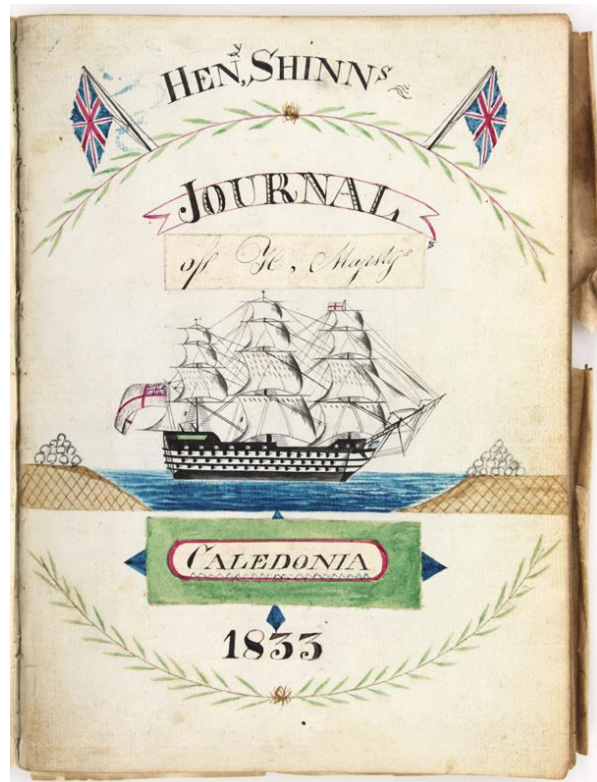 HEN,y SHINNs
JOURNAL
off Ye, Majestys
CALEDONIA
1833